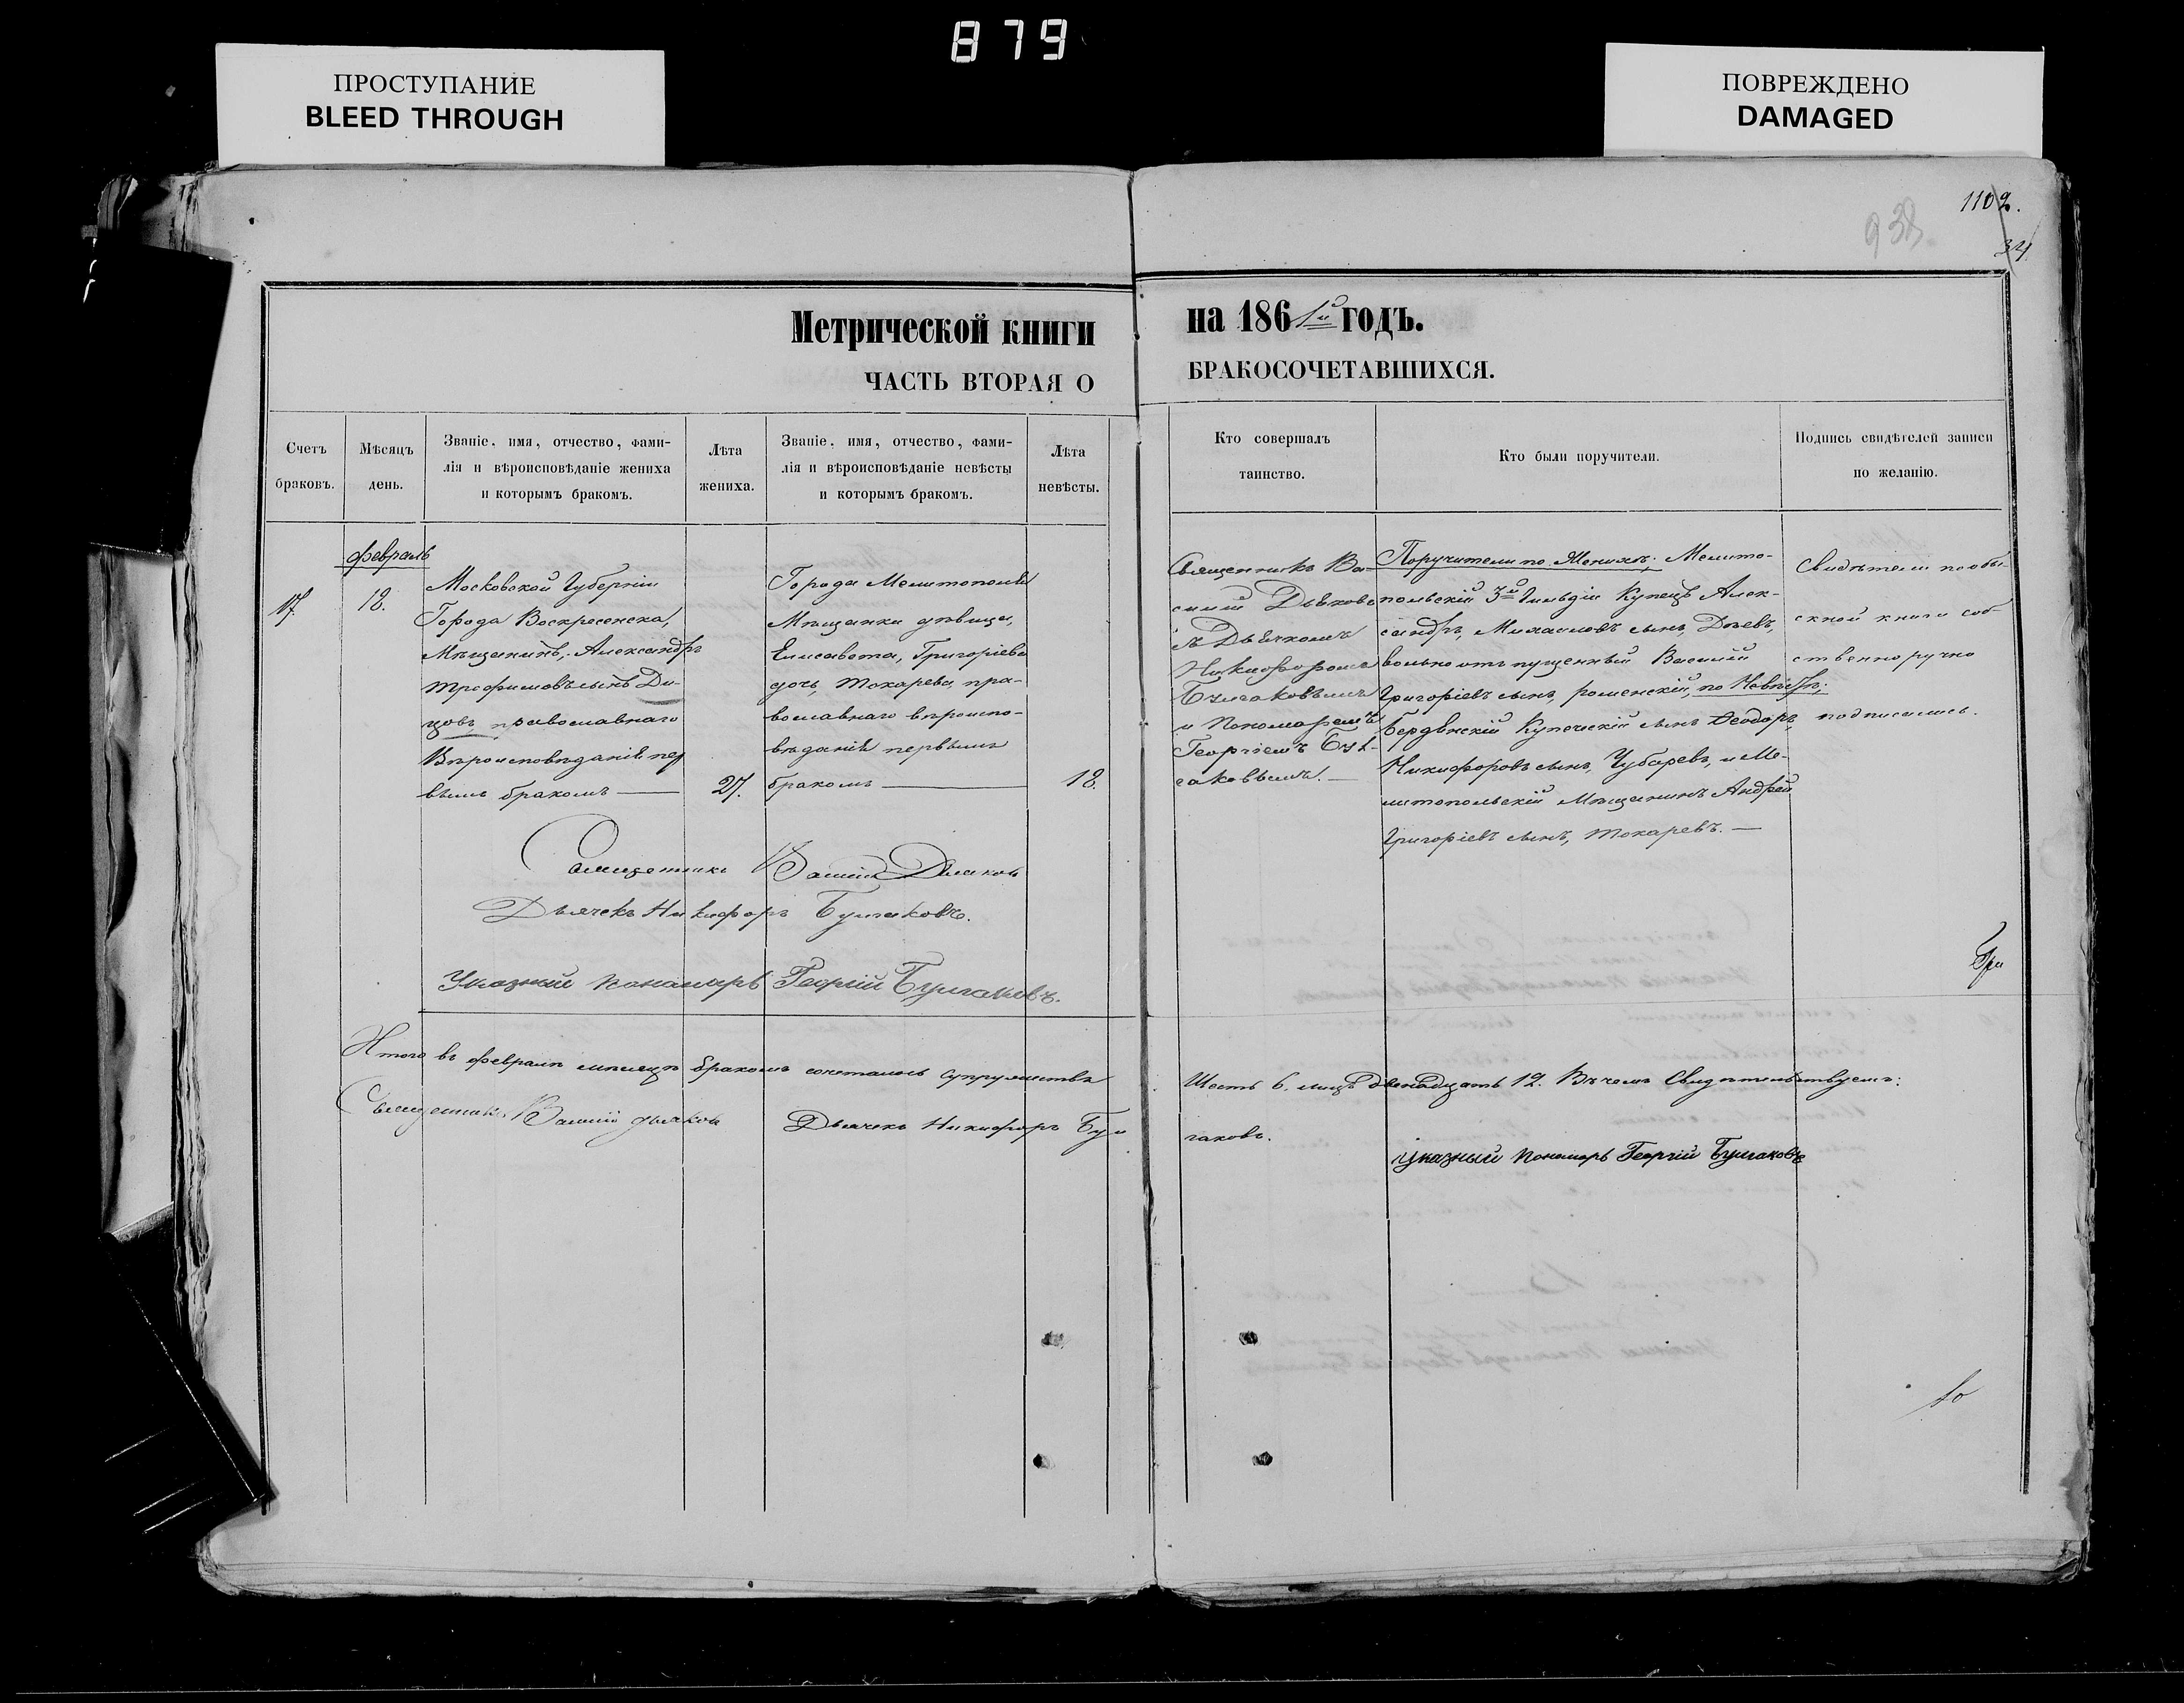 879
ПРОСТУПАНИЕ
BLEED THROUGH
ПОВРЕЖДЕНО
DAMAGED
1102.
938.
34
Метрической книги
на 1861й годъ.
ЧАСТЬ ВТОРАЯ О
БРАКОСОЧЕТАВШИХСЯ.
Счетъ
браковъ.
Мѣсяцъ
день.
Званіе, имя, отчество, фами-
лія и вѣроисповѣданіе жениха
и которымъ бракомъ.
Лѣта
жениха.
Званіе, имя, отчество, фами-
лія и вѣроисповѣданіе невѣсты
и которымъ бракомъ.
Лѣта
невѣсты.
Кто совершалъ
таинство.
Кто были поручители.
Подпись свидѣтелей записи
по желанію.
17
февраль
12.
Московской Губерніи
Города Воскресенска,
Мѣщанинъ, Александръ
Трофимовъ сынъ
православнаго
Вѣроисповѣданія пер
вымъ бракомъ
27.
Города Мелитополя
Мѣщанки дѣвица,
Елисавета, Григоріева
дочь, Токарева, пра-
вославнаго вѣроиспо-
вѣданія первымъ
бракомъ
18.
Священникъ Ва-
силій Дьяковъ
съ Дьячкомъ
Никифоромъ
Булгаковымъ
и Пономаремъ
Георгіемъ Бул-
гаковымъ.
Поручители по Женихѣ: Мелито-
польскій 3й Гильдіи Купецъ Алек-
сандръ, Михаиловъ сынъ,
вольноотпущенный Василій
Григоріевъ сынъ, роменскій, по Невѣстѣ:
Бердянскій Купеческій сынъ Феодоръ,
Никифоровъ сынъ, Чубаревъ, и Ме-
литопольскій Мѣщанинъ Андрей
Григоріевъ сынъ, Токаревъ.
Свидѣтели по обы-
скной книги соб-
ственноручно
подписались.
Священникъ Василій Дьяковъ
Дьячекъ Никифоръ Булгаковъ.
Указный пономарь Георгій Булгаковъ.
Итого въ февралѣ мѣсяцѣ бракомъ сочеталось супружества
Шесть 6. лицъ двенадцать 12. Въ чемъ Свидѣтельствуемъ:
Священникъ Василій Дьяковъ
Дьячекъ Никифоръ Бул
гаковъ.
Указный пономарь Георгій Булгаковъ